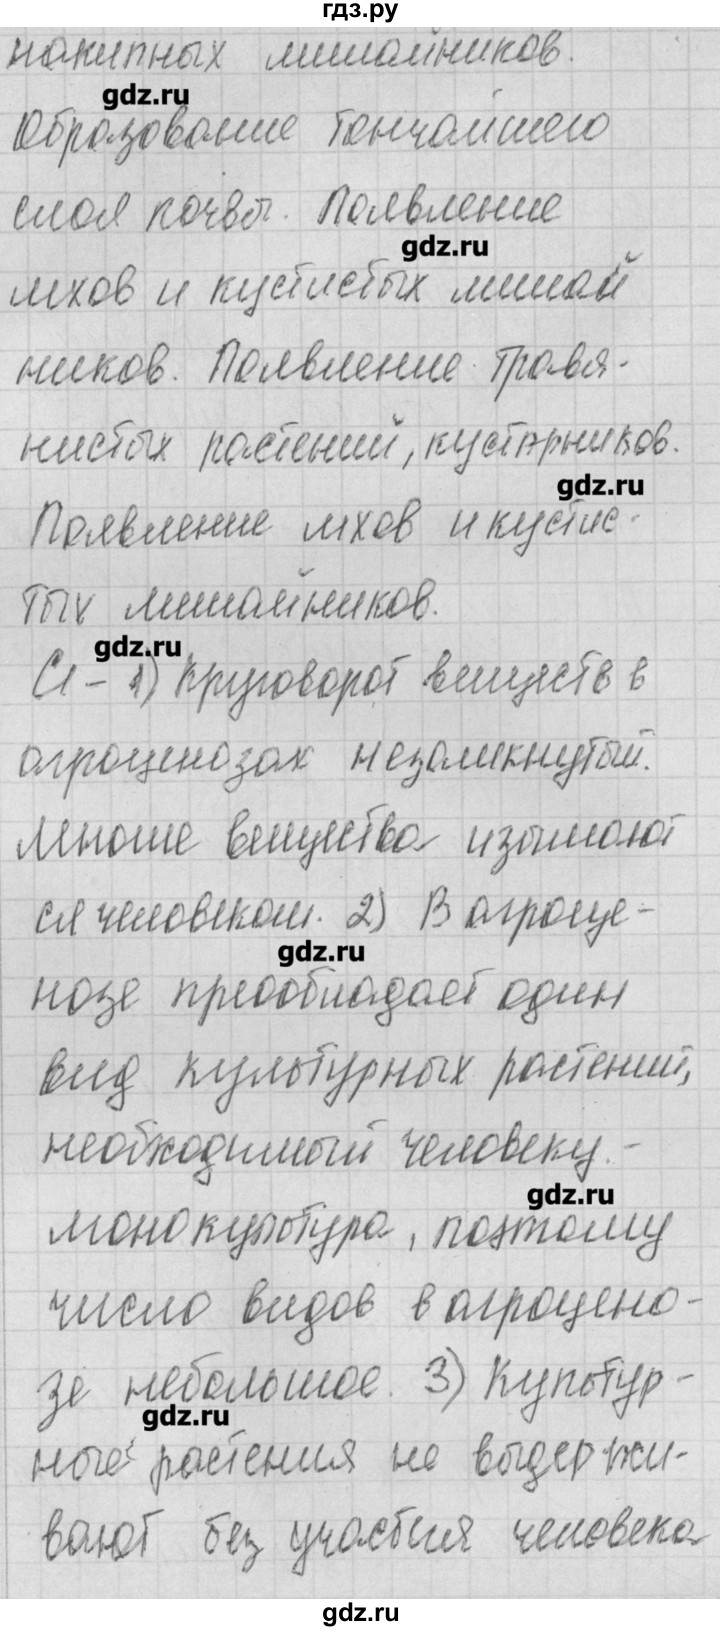 гдз.ру
накипных лишайников.
gdz.ru
Образование тончайшего
слоя почвы. Появление
gdz.ru
мхов и кустистых лишай
ников. Появление травя-
нистых растений, кустарников.
gdz.ru
Появление мхов и кустис-
тых лишайников.
gdz.ru
С1 - 1) Круговорот веществ в
агроценозах незамкнутый.
Многие вещества изымают
ся человеком. 2) В агроце-
gdz.ru
нозе преобладает один
вид культурных растений,
необходимый человеку. -
gdz.ru
монокультура, поэтому
число видов в агроцено-
зе небольшое. 3) Культур-
gdz.ru
ные растения не выдержи-
вают без участия человека
gdz.ru